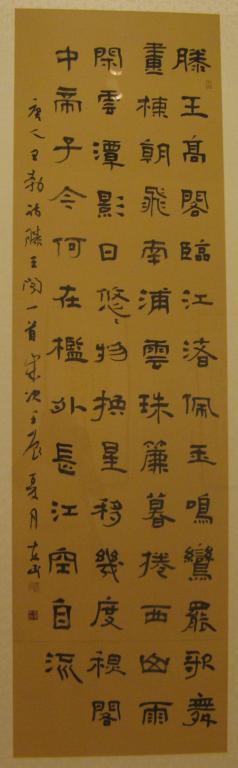 滕王高閣臨江渚佩玉鳴鸞罷歌舞
畫棟朝飛南浦雲珠簾暮捲西山雨
閑雲潭影日悠〻物換星移幾度秋閣
中帝子今何在檻外長江空自流
唐人王勃詩滕王閣一首歲次壬辰夏月